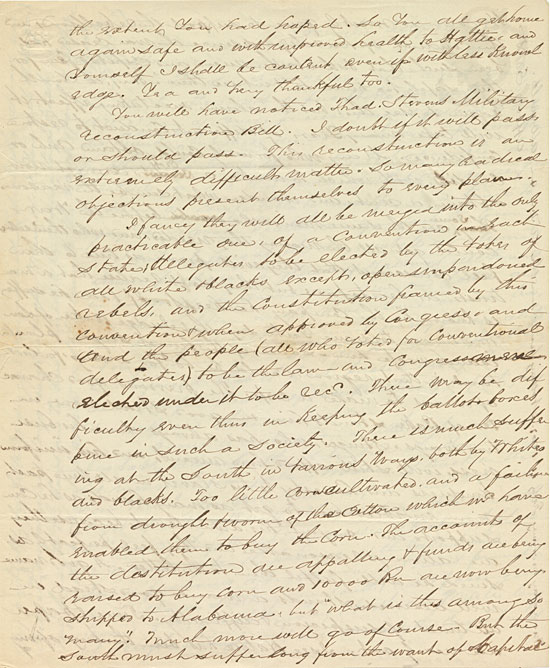 the extent You had hoped. So You all get home
again safe and with improved health to Hattie and
yourself I shall be content even if with less Knowl
edge. Yea and Very thankful too.
You will have noticed Thad. Stevens Military
reconstruction Bill. I doubt if it will pass
or should pass. This reconstruction is an
extremely difficult matter. So many radical
objections present themselves to every plan.
I fancy they will all be merged into the only
practicable one, of a Convention in each
State, Delegates to be elected by the votes of
all white & blacks except, open unpardoned
rebels, and the Constitution framed by this
convention & when approved by Congress and
And the people (all who voted for Conventional
delegates) to be the law and Congress
elected under it to be recd. There may be dif
ficulty even thus in Keeping the ballot boxes
pure in such a Society. There is much suffer
ing at the South in various ways, both by Whites
and blacks. Too little corn cultivated, and a failure
from drought & worm of the Cotton which wd have
enabled them to buy the Corn. The accounts of
the destitution are appalling & funds are being
raised to buy corn and 10000 Bu are now being
shipped to Alabama, but "what is this among so
many". Much more will go of Course. But the
South must suffer long from the want of